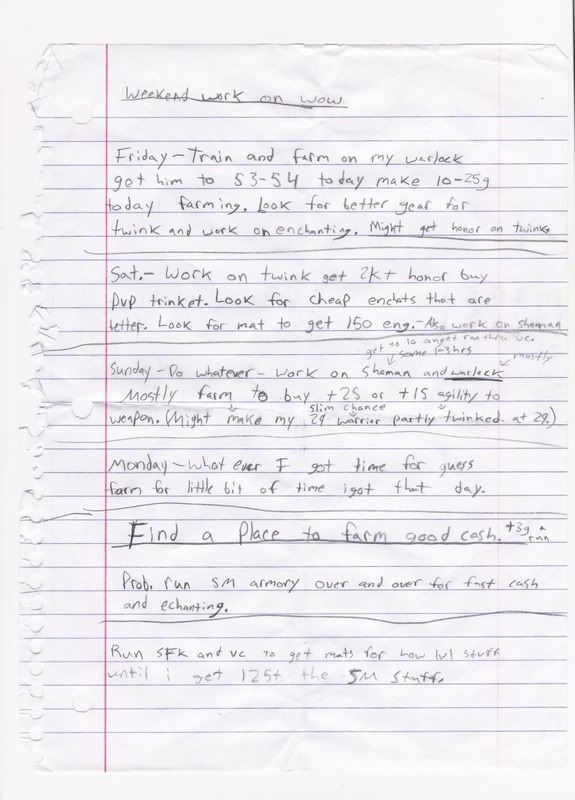 Weekend work on wow
Friday - Train and farm on my warlock
get him to 53-54 today make 10-25g
today farming. Look for better gear for
twink and work on enchanting. Might get honor on twink
Sat. - Work on twink get 2k+ honor buy
pvp trinket. Look for cheap enchats that are
better. Look for mat to get 150 eng. - Also work on shaman
get to 10 an get ran thru vc.
some 1-3hrs
mostly
Sunday - Do whatever - work on shaman and warlock
Mostly farm to buy +25 or +15 agility to
slim chance
weapon. (Might make my 29 warrier partly twinked. at 29.)
Monday - What ever I got time for guess
farm for little bit of time i got that day.
Find a Place to farm good cash. +3g a
run
Prob. run SM armory over and over for fast cash
and echanting.
Run SFK and vc to get mats for low lvl stuff
until i get 125+ the SM stuff.